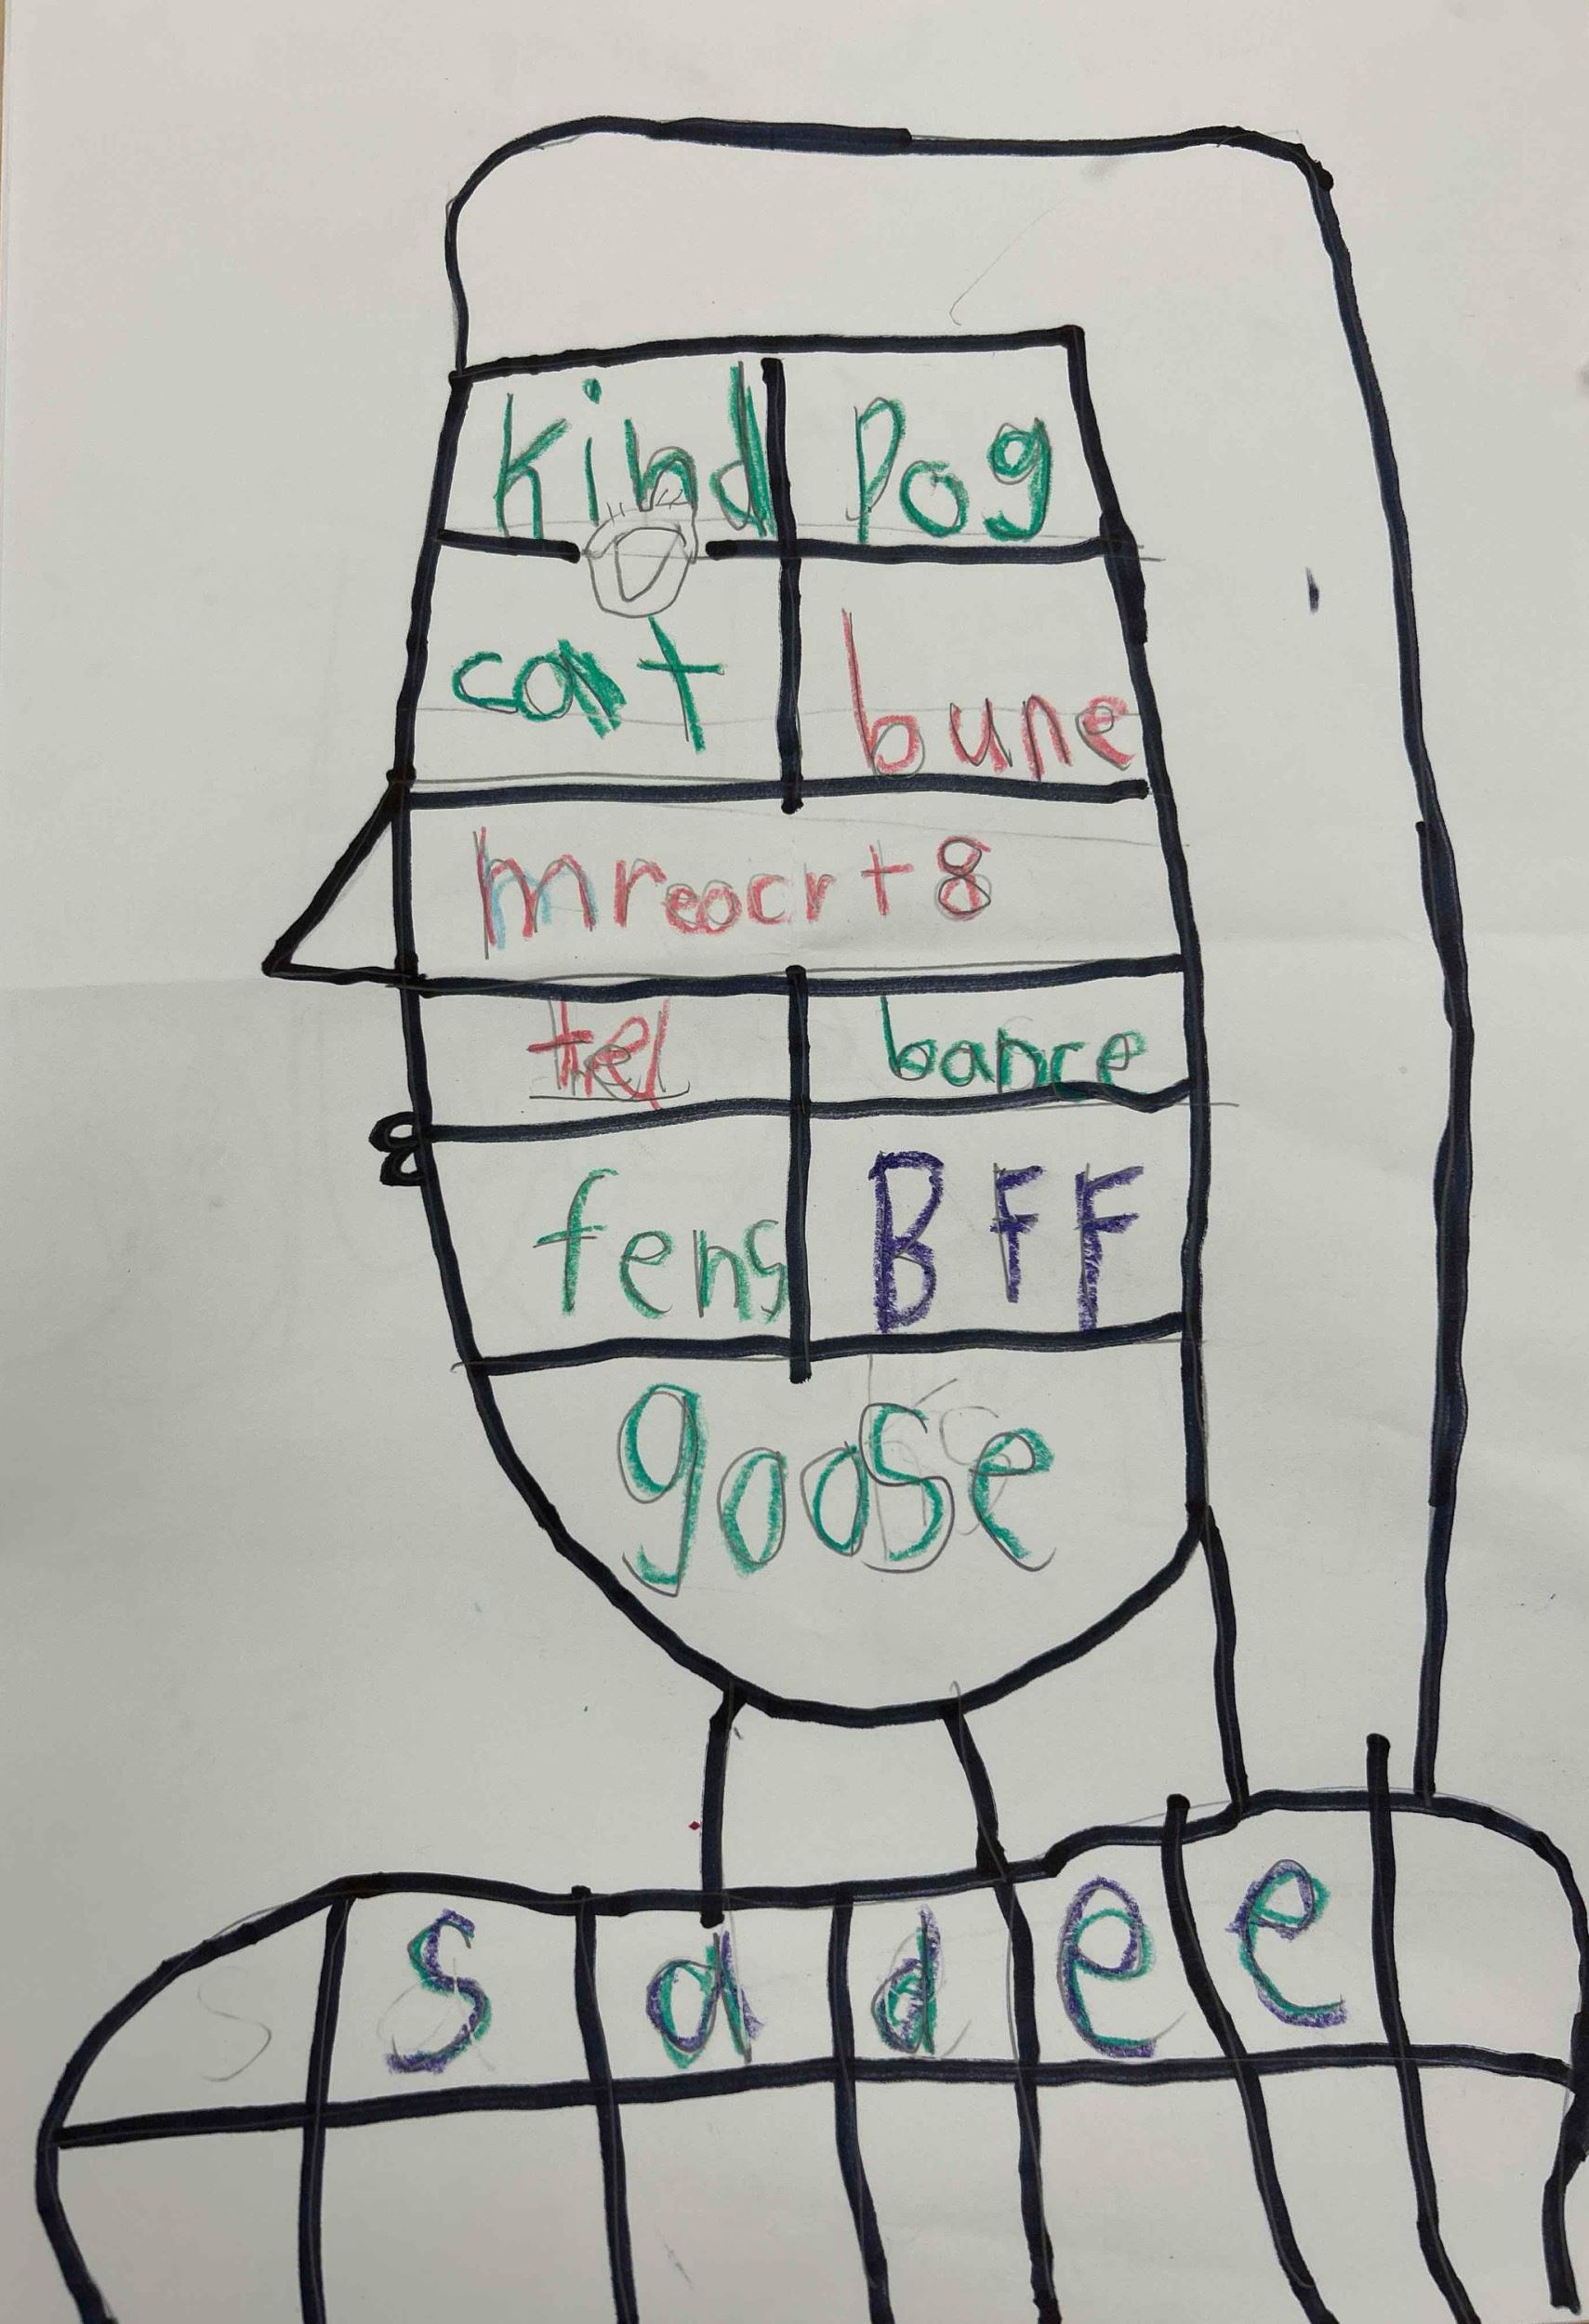 kind Pog
cat bune
mreocrt8
tel bance
fens BFF
goose
s d d e e